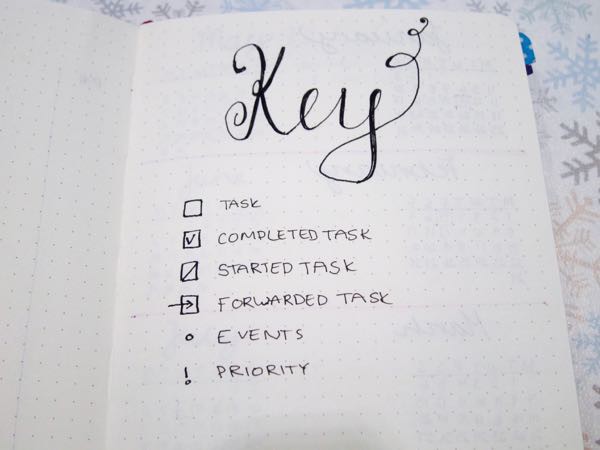 Key
TASK
COMPLETED TASK
STARTED TASK
FORWARDED TASK
EVENTS
! PRIORITY